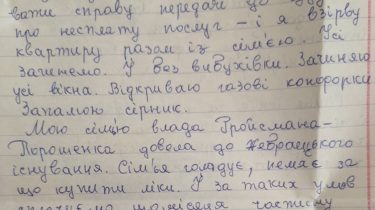 вати справу передачі до суду
про несплату послуг – і я взірву
квартиру разом із сім'єю. Усі
загинемо. І без вибухівки. Зачиняю
усі вікна. Відкриваю газові конфорки
Запалюю сірник.
Мою сім'ю влада Гройсмана–
Порошенка довела до жебрацького
існування. Сім'я голодує, немає за
що купити ліки. І за таких умов
щомісяця частину